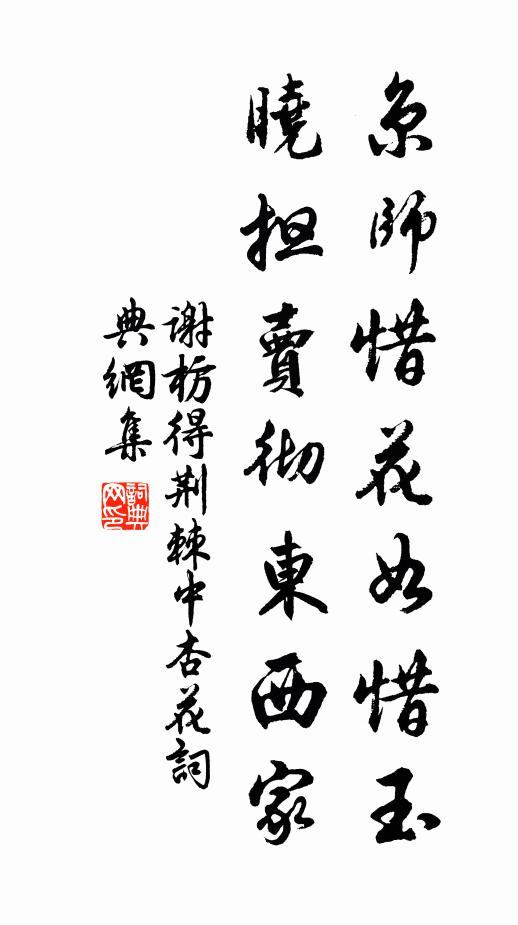 京師惜花如惜玉
曉担賣彻東西家
谢枋得荆棘中杏花詞
典網集
詞典网印